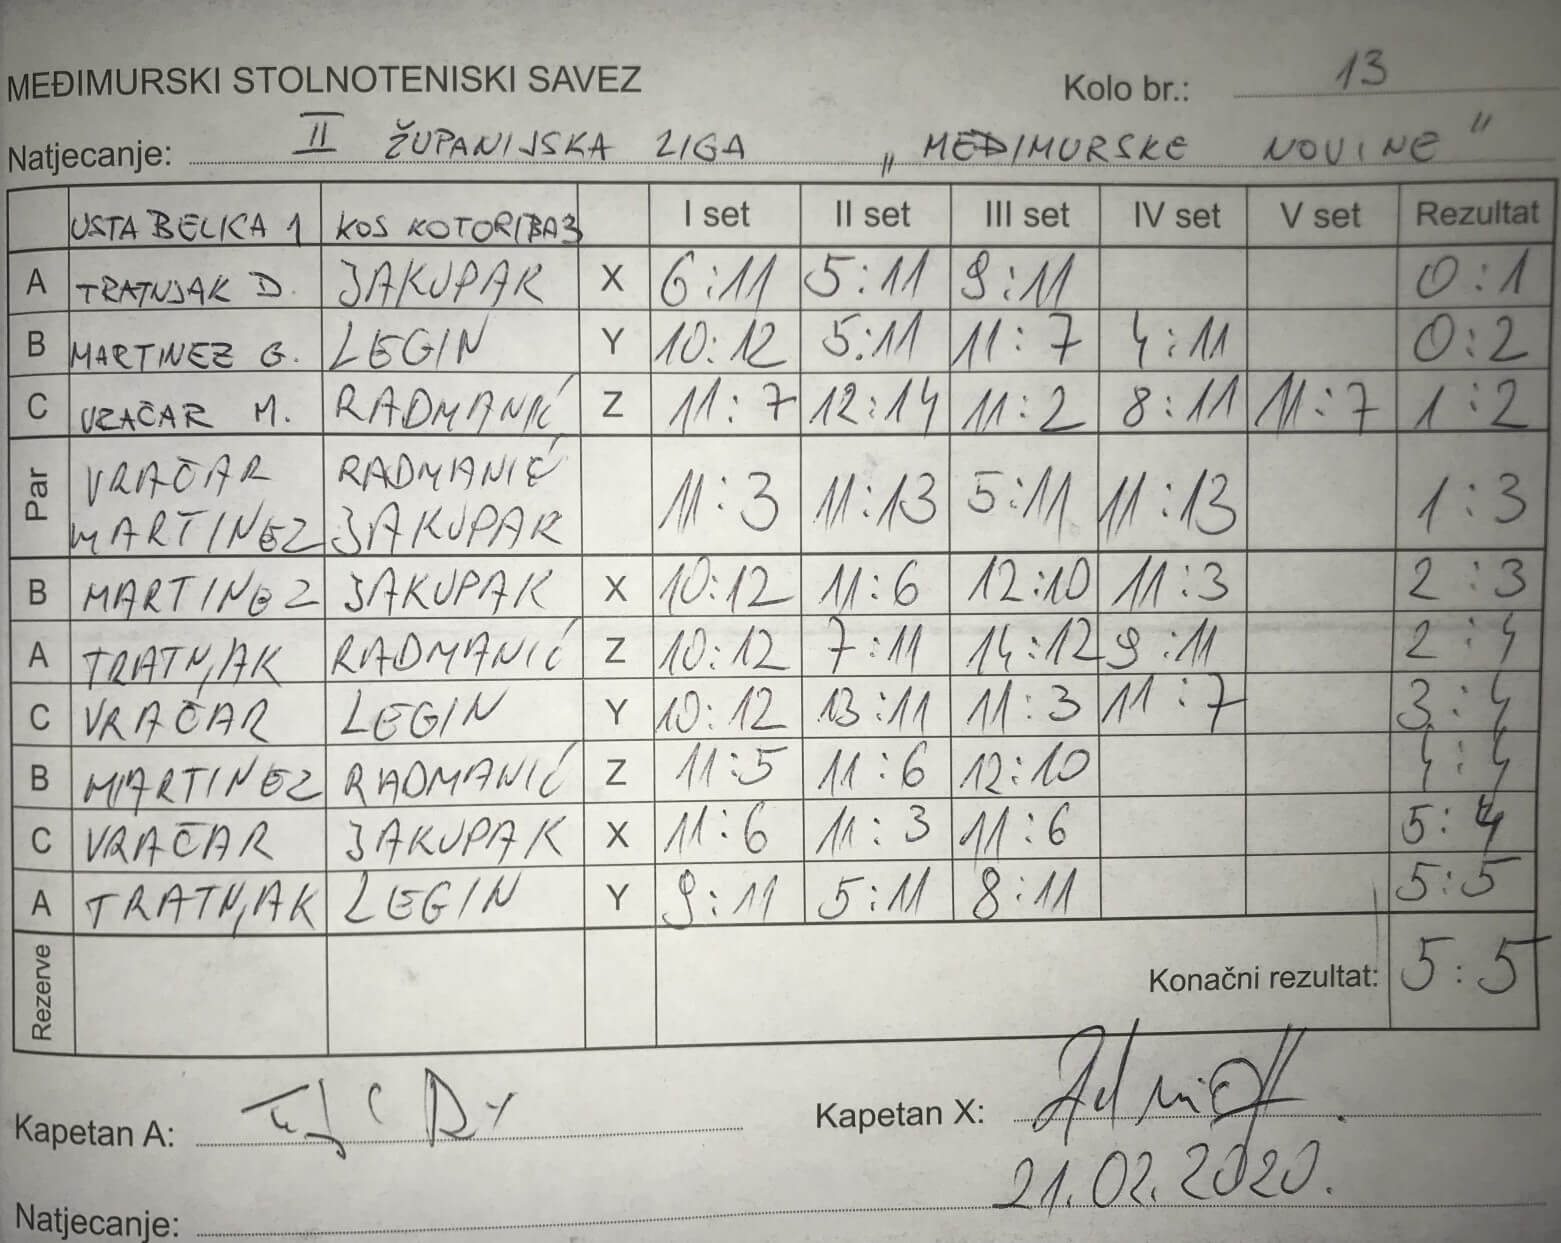 MEĐIMURSKI STOLNOTENISKI SAVEZ Kolo br.: 13
Natjecanje: II ŽUPANIJSKA LIGA „MEĐIMURSKE NOVINE"
USTA BELICA 1 KOS KOTORIBA 3 I set II set III set IV set V set Rezultat
A TRATNJAK D. JAKUPAK X 6:11 5:11 9:11 0:1
B MARTINEZ G. LEGIN Y 10:12 5:11 11:7 4:11 0:2
C VRAČAR M. RADMANIĆ Z 11:7 12:14 11:2 8:11 11:7 1:2
Par VRAČAR MARTINEZ RADMANIĆ JAKUPAK 11:3 11:13 5:11 11:13 1:3
B MARTINEZ JAKUPAK X 10:12 11:6 12:10 11:3 2:3
A TRATNJAK RADMANIĆ Z 10:12 7:11 14:12 9:11 2:4
C VRAČAR LEGIN Y 10:12 13:11 11:3 11:7 3:4
B MARTINEZ RADMANIĆ Z 11:5 11:6 12:10 4:4
C VRAČAR JAKUPAK X 11:6 11:3 11:6 5:4
A TRATNJAK LEGIN Y 9:11 5:11 8:11 5:5
Rezerve Konačni rezultat: 5:5
Kapetan A: Kapetan X:
21.02.2020.
Natjecanje: